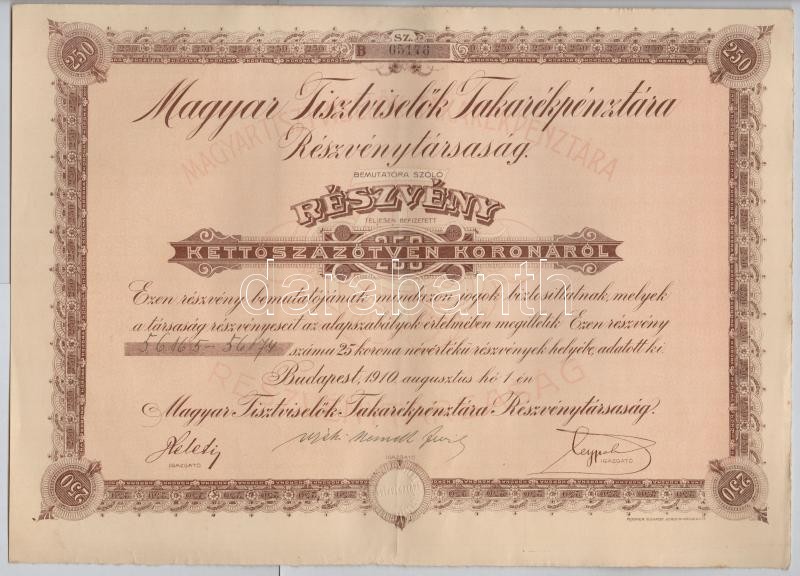 250
SZ.
B 05176
250
Magyar Tisztviselők Takarékpénztára
Részvénytársaság.
BEMUTATÓRA SZÓLÓ
RÉSZVÉNY
TELJESEN BEFIZETETT
250
KETTŐSZÁZÖTVEN KORONÁRÓL
darabanth
Ezen részvény bemutatójának mindazon jogok biztosíttatnak, melyek
a társaság részvényeseit az alapszabályok értelmében megilletik. Ezen részvény
56165-56174 számú 25 korona névértékű részvények helyébe adatott ki.
Budapest, 1910. augusztus hó 1-én
Magyar Tisztviselők Takarékpénztára Részvénytársaság.
IGAZGATÓ
IGAZGATÓ
IGAZGATÓ
250
250